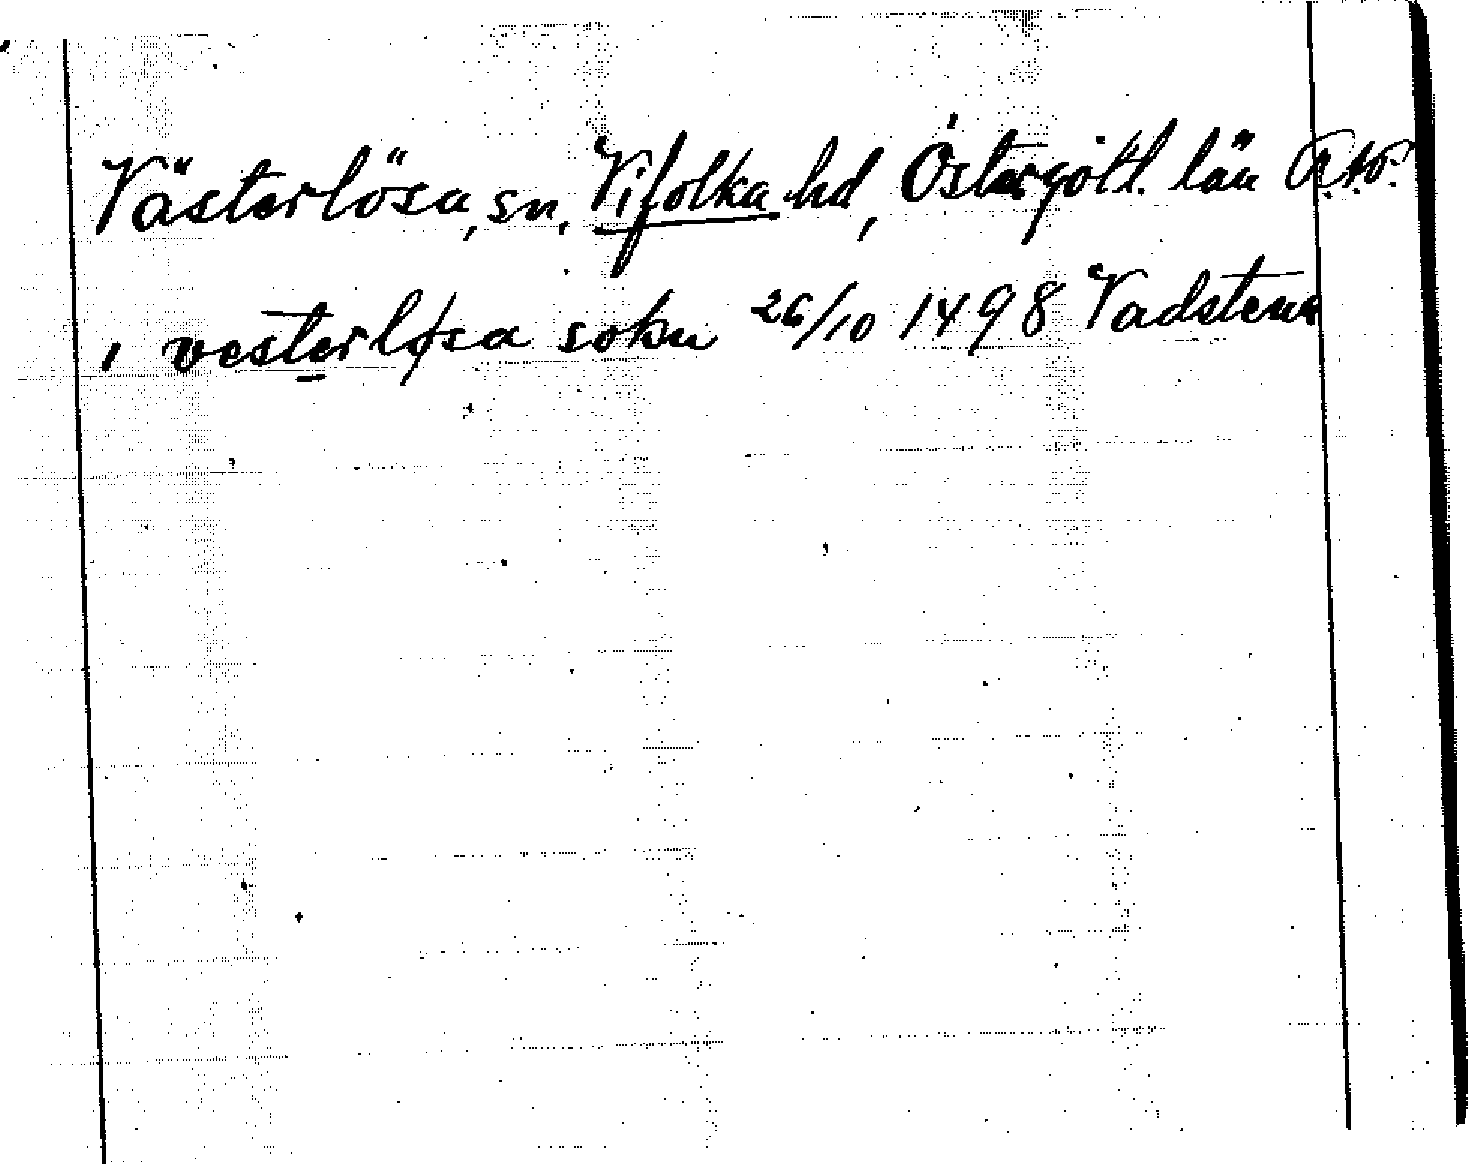 Västerlösa, sn, Vifolka hd, Östergötl. län
i vesterløsa sokn 26/10 1498 Vadstena